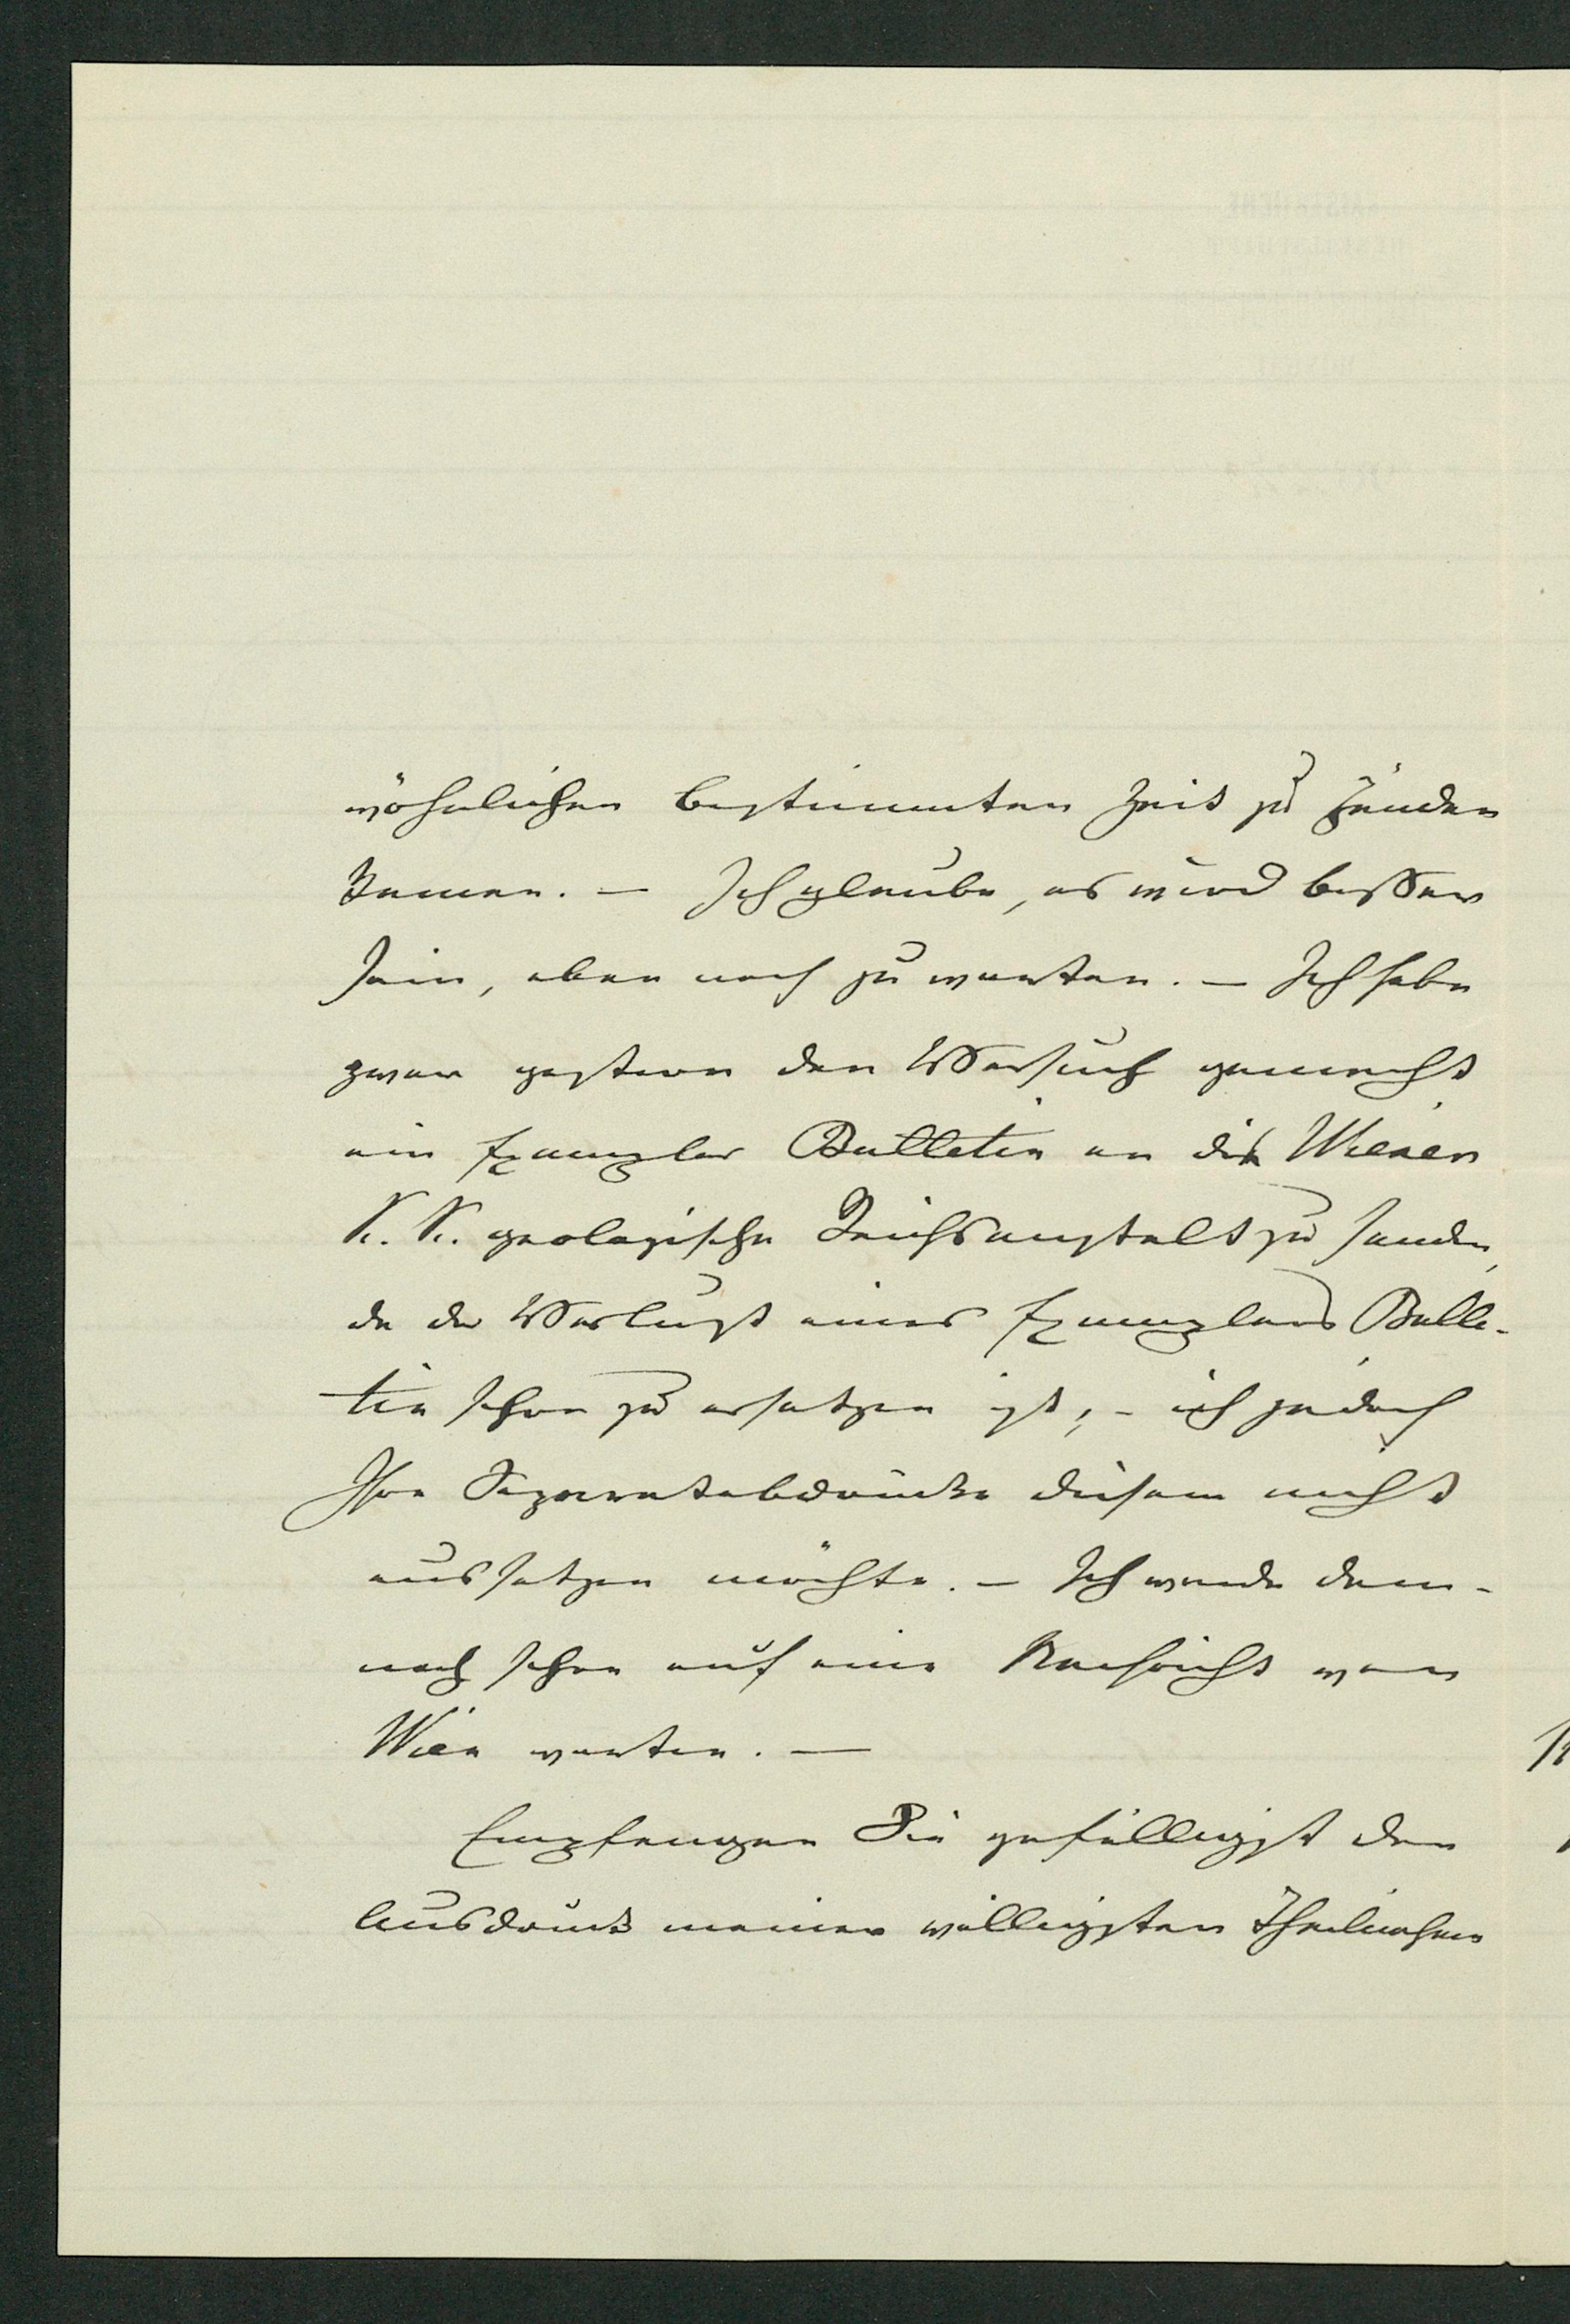 wöhnlichen bestimmten Zeit zu Händen
kamen. – Ich glaube, es wird besser
sein, eben noch zu warten. – Ich habe
zwar gestern den Versuch gemacht
ein Exemplar Bulletin an die Wiener
K. K. geologische Reichsanstalt zu senden,
da der Verlust eines Exemplars Bulle-
tin schon zu ersetzen ist, – ich jedoch
Ihre Separatabdrücke diesem nicht
aussetzen möchte. – Ich werde dem-
nach schon auf eine Nachricht von
Wien warten. –
Empfangen Sie gefälligst den
Ausdruck meiner willigsten